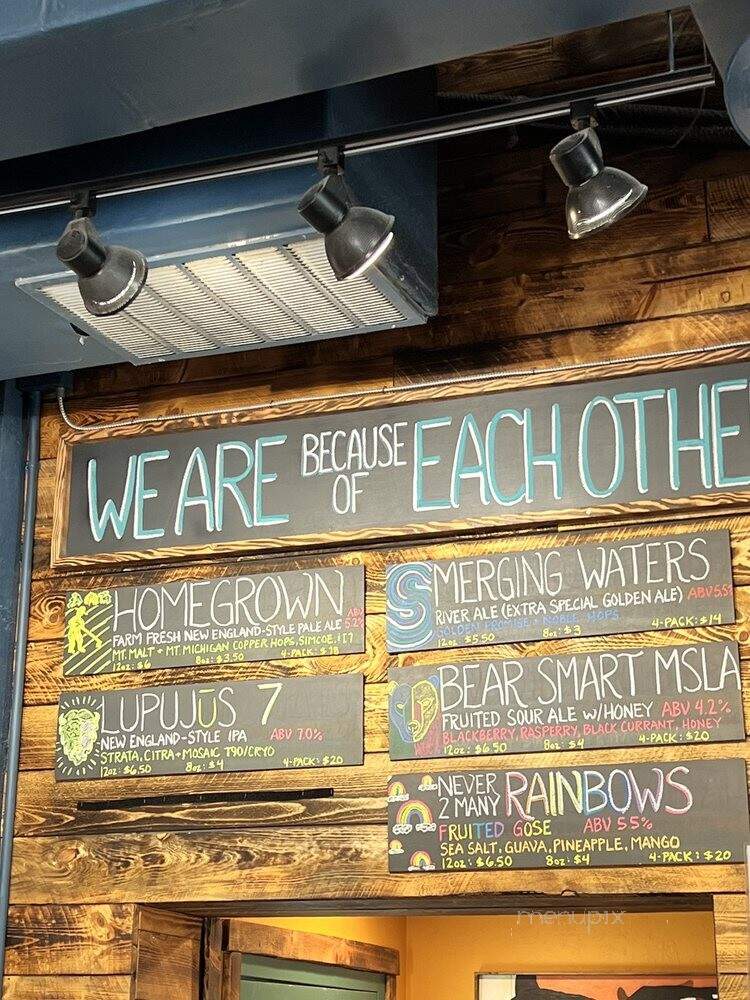 WE ARE BECAUSE OF EACH OTHE
HOMEGROWN
FARM FRESH NEW ENGLAND-STYLE PALE ALE ABV 5.2%
MT. MALT + MT. MICHIGAN COPPER HOPS, SIMCOE, I7
12oz: $6 8oz: $3.50 4-PACK: $18
LUPUJŪS 7
NEW ENGLAND-STYLE IPA ABV 7.0%
STRATA, CITRA+MOSAIC T90/CRYO
12oz: $6.50 8oz: $4 4-PACK: $20
SMERGING WATERS
RIVER ALE (EXTRA SPECIAL GOLDEN ALE) ABV 5.5%
GOLDEN PROMISE + NOBLE HOPS
12oz $5.50 8oz: $3 4-PACK: $14
BEAR SMART MSLA
FRUITED SOUR ALE W/HONEY ABV 4.2%
BLACKBERRY, RASPERRY, BLACK CURRANT, HONEY
12oz: $6.50 8oz: $4 4-PACK: $20
NEVER 2 MANY RAINBOWS
FRUITED GOSE ABV 5.5%
SEA SALT, GUAVA, PINEAPPLE, MANGO
12oz: $6.50 8oz: $4 4-PACK: $20
menupix